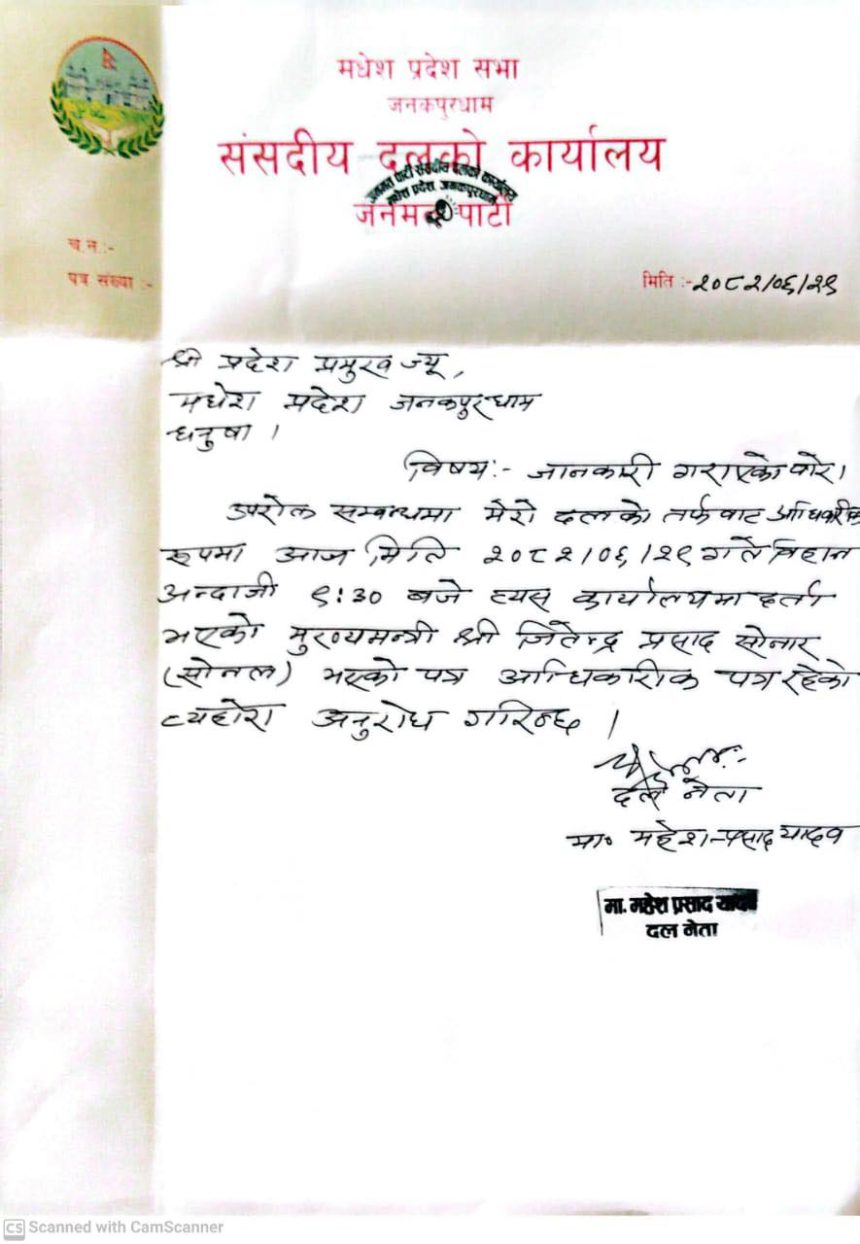 मधेश प्रदेश सभा
जनकपुरधाम
संसदीय दलको कार्यालय
जनमत पार्टी संसदीय दलको कार्यालय
मधेश प्रदेश, जनकपुरधाम
जनमत पार्टी
च.न.:-
पत्र संख्या :-
मिति :- २०८२/०६/२९
श्री प्रदेश प्रमुख ज्यू,
मधेश प्रदेश जनकपुरधाम
धनुषा ।
विषय:- जानकारी गराएको बारे।
उपरोक्त सम्बन्धमा मेरो दलको तर्फबाट आधिकारीक
रूपमा आज मिति २०८२/०६/२९ गते बिहान
अन्दाजी ९:३० बजे त्यस कार्यालयमा दर्ता
भएको मुख्यमन्त्री श्री जितेन्द्र प्रसाद सोनार
(सोनल) भएको पत्र आधिकारीक पत्र रहेको
व्यहोरा अनुरोध गरिन्छ ।
दल नेता
मा० महेश प्रसाद यादव
मा. महेश प्रसाद यादव
दल नेता
CS Scanned with CamScanner